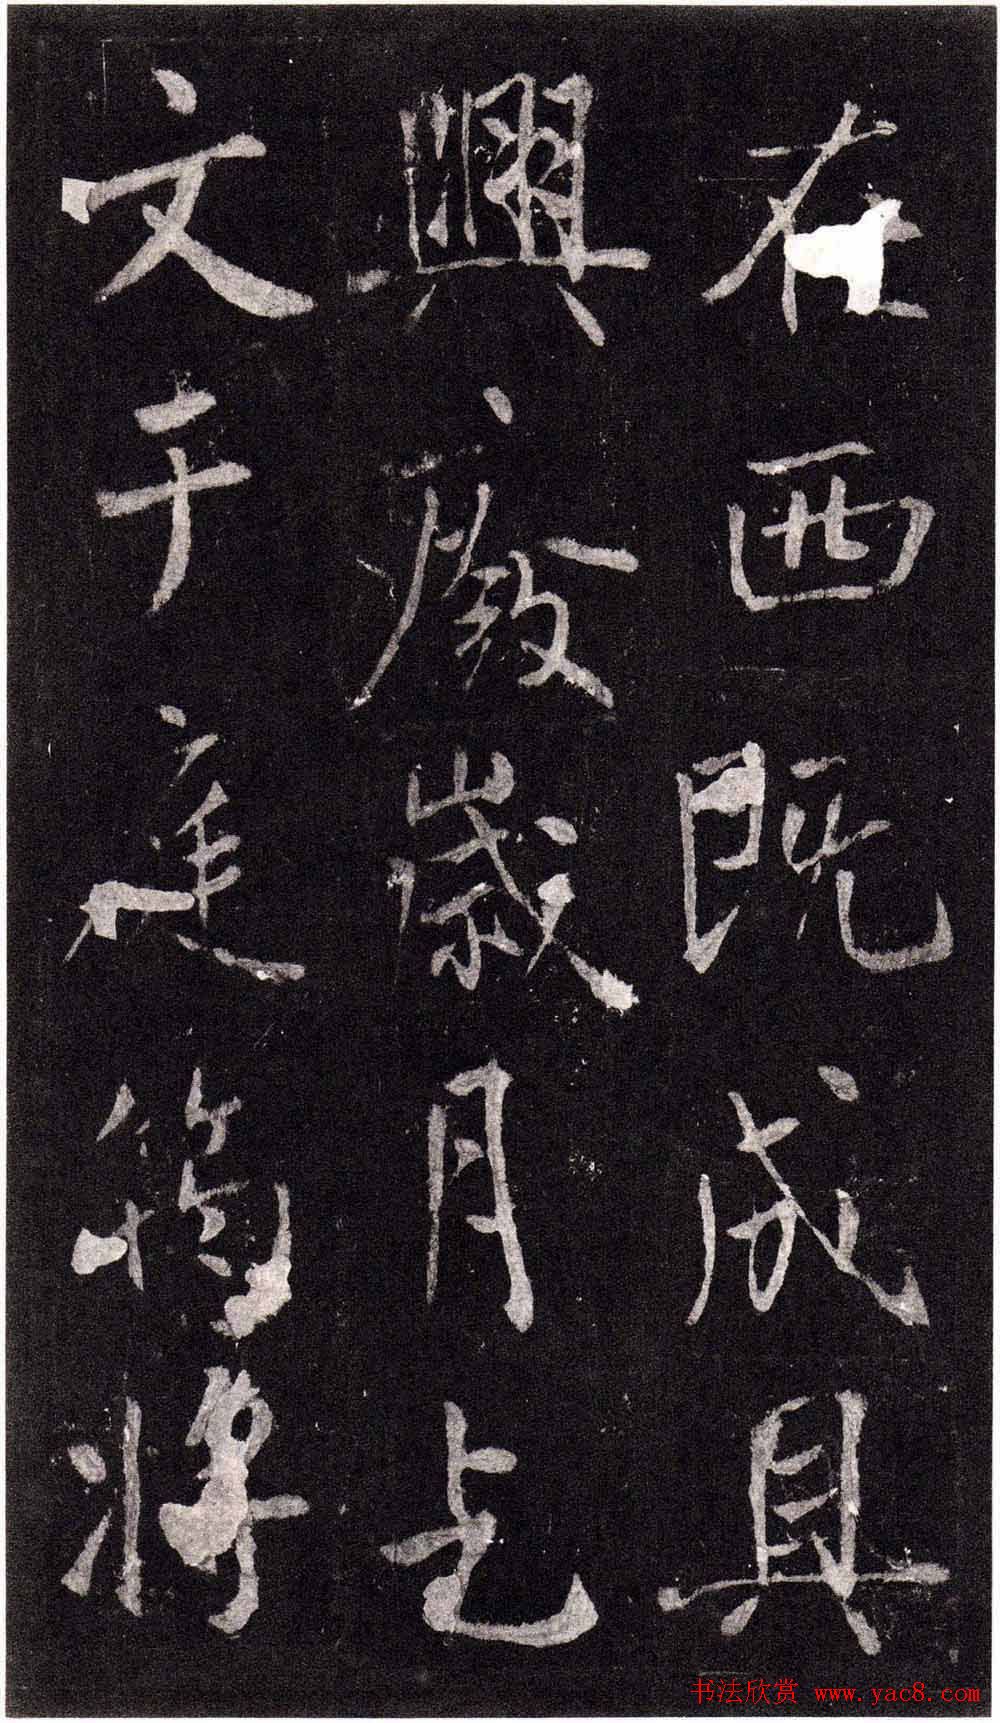 在西既成具
興廢歲月乞
文于庭筠將
书法欣赏 www.yac8.com